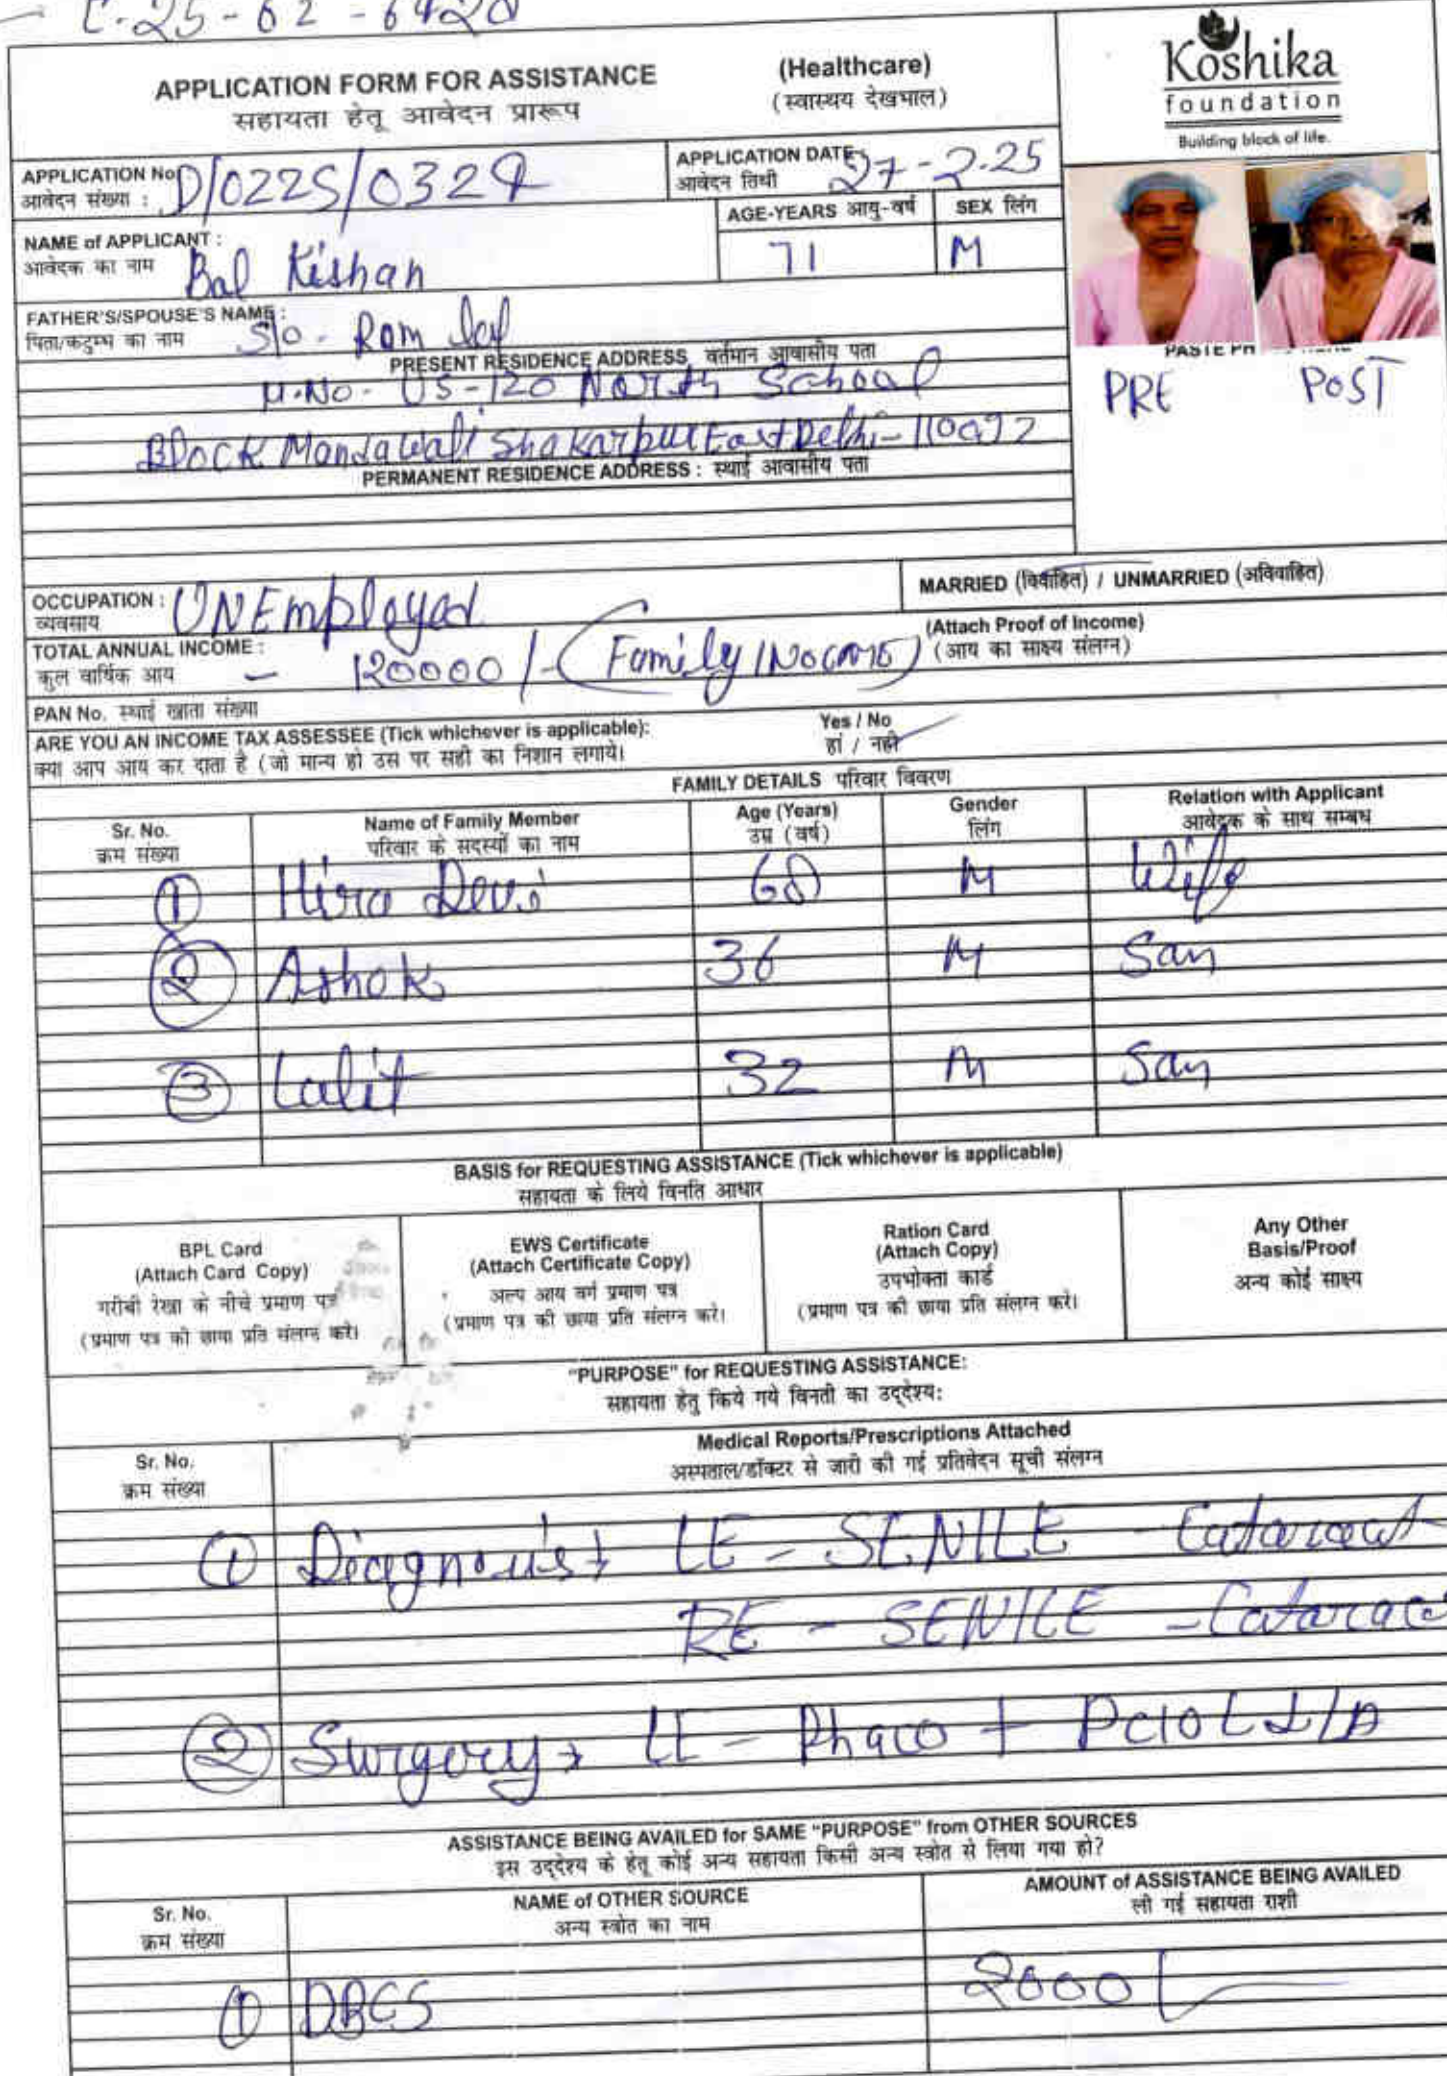 C-25-02-6420
APPLICATION FORM FOR ASSISTANCE
सहायता हेतू आवेदन प्रारूप
(Healthcare)
(स्वास्थय देखभाल)
Koshika
foundation
Building block of life.
APPLICATION No.
आवेदन संख्या : D/0225/0329
APPLICATION DATE
आवेदन तिथी 27-2-25
AGE-YEARS आयु-वर्ष SEX लिंग
71 M
NAME of APPLICANT :
आवेदक का नाम Bal Kishan
FATHER'S/SPOUSE'S NAME :
पिता/कटुम्ब का नाम S/o - Ram
PASTE PH
PRE POST
PRESENT RESIDENCE ADDRESS वर्तमान आवासीय पता
H.No- US-120 North School
Block Mandawali Shakarpur East Delhi-110092
PERMANENT RESIDENCE ADDRESS : स्थाई आवासीय पता
OCCUPATION : UNEmployed
व्यवसाय
MARRIED (विवाहित) / UNMARRIED (अविवाहित)
TOTAL ANNUAL INCOME :
कुल वार्षिक आय - 120000/- (Family INocome)
(Attach Proof of Income)
(आय का साक्ष्य संलग्न)
PAN No. स्थाई खाता संख्या
ARE YOU AN INCOME TAX ASSESSEE (Tick whichever is applicable): Yes / No
क्या आप आय कर दाता है (जो मान्य हो उस पर सही का निशान लगाये। हां / नही
FAMILY DETAILS परिवार विवरण
Sr. No. Name of Family Member Age (Years) Gender Relation with Applicant
क्रम संख्या परिवार के सदस्यों का नाम उम्र (वर्ष) लिंग आवेदक के साथ सम्बध
1 Hira Devi 60 M Wife
2 Ashok 36 M San
3 Lalit 32 M San
BASIS for REQUESTING ASSISTANCE (Tick whichever is applicable)
सहायता के लिये विनति आधार
BPL Card
(Attach Card Copy)
गरीबी रेखा के नीचे प्रमाण पत्र
(प्रमाण पत्र की छाया प्रति संलग्न करे।
EWS Certificate
(Attach Certificate Copy)
अल्प आय वर्ग प्रमाण पत्र
(प्रमाण पत्र की छाया प्रति संलग्न करे।
Ration Card
(Attach Copy)
उपभोक्ता कार्ड
(प्रमाण पत्र की छाया प्रति संलग्न करे।
Any Other
Basis/Proof
अन्य कोई साक्ष्य
"PURPOSE" for REQUESTING ASSISTANCE:
सहायता हेतु किये गये विनती का उद्देश्य:
Sr. No. Medical Reports/Prescriptions Attached
क्रम संख्या अस्पताल/डॉक्टर से जारी की गई प्रतिवेदन सूची संलग्न
1 Diagnosis LE - SENILE - Cataract
RE - SENILE - Catarac
2 Surgery LE - Phaco + PCIOL
ASSISTANCE BEING AVAILED for SAME "PURPOSE" from OTHER SOURCES
इस उद्देश्य के हेतू कोई अन्य सहायता किसी अन्य स्त्रोत से लिया गया हो?
Sr. No. NAME of OTHER SOURCE AMOUNT of ASSISTANCE BEING AVAILED
क्रम संख्या अन्य स्त्रोत का नाम ली गई सहायता राशी
1 DBCS 2000/-